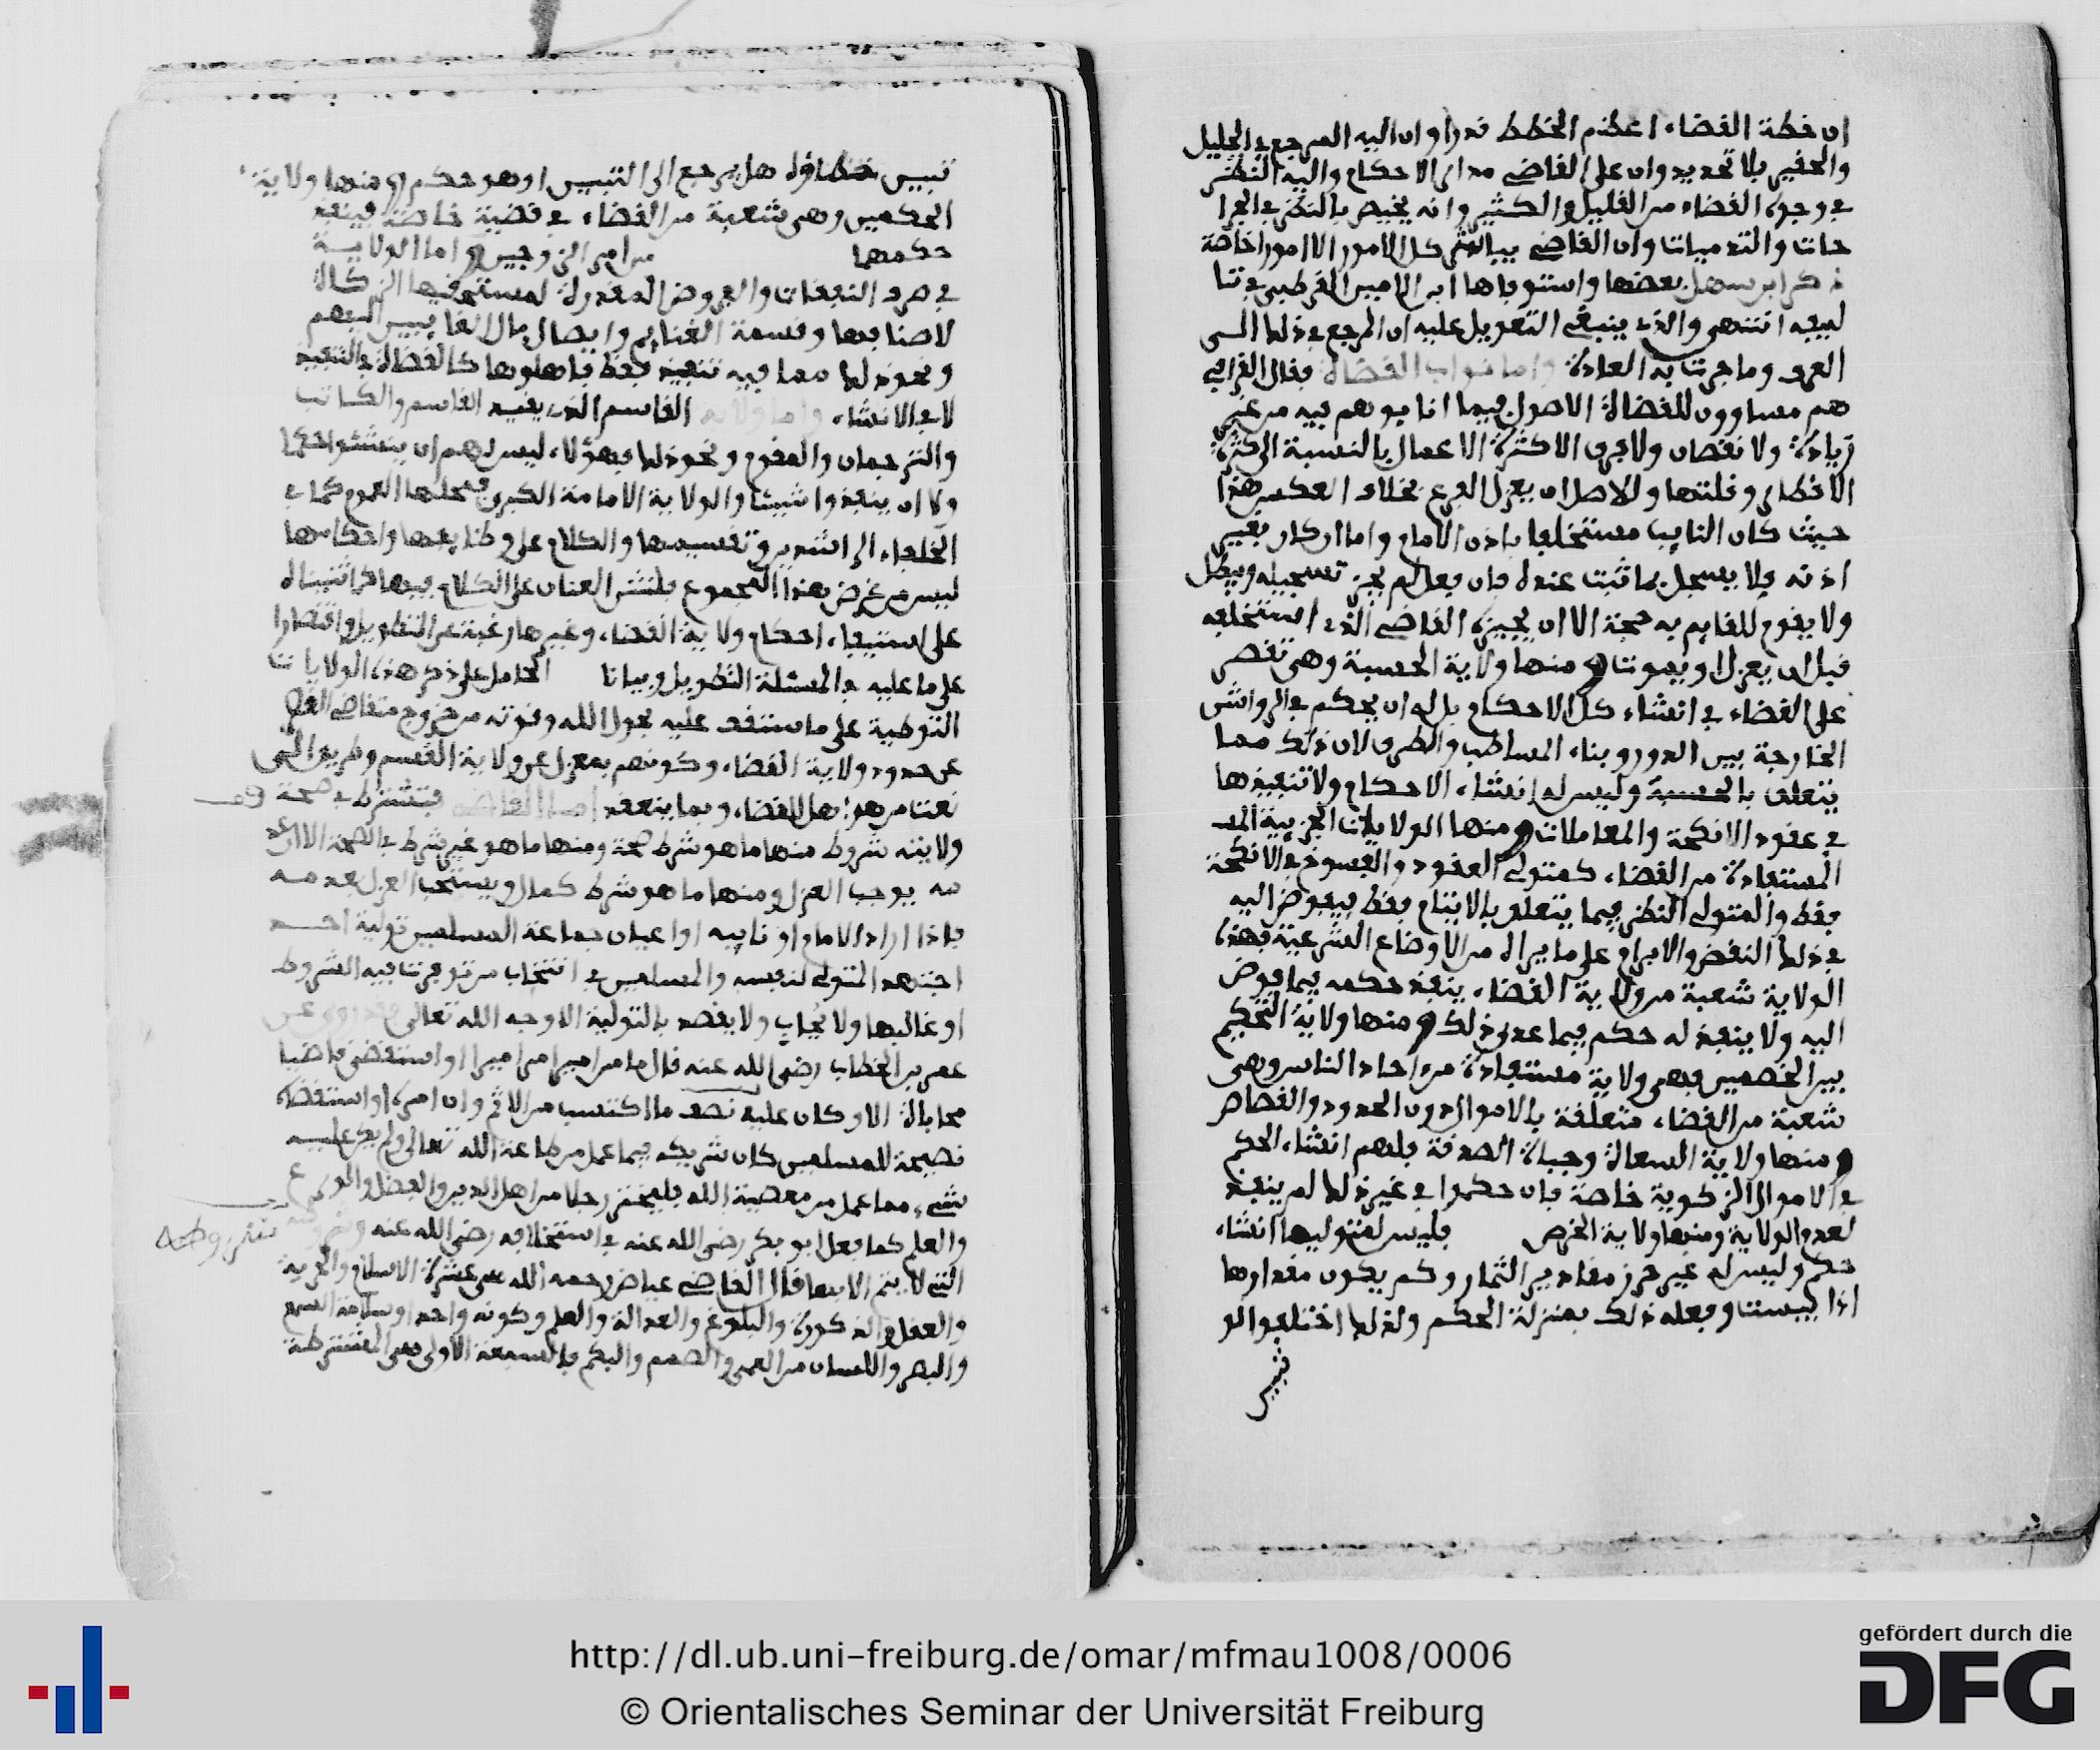 ان خطة القضاء اعظم الخطط قدرا وان اليه المرجع في الجليل
والحقير بلا تحديد وان على القاضي مدار الاحكام واليه النظر
في وجوه القضاء من القليل والكثير وانه يختص بالنظر في الجرا
حات والتدميات وان القاضي يباشر كل الامور الا امورا خاصة
ذكر ابن سهل بعضها واستوفاها ابن الامين القرطبي في تئا
ليفه انتهى والذي ينبغي التعويل عليه ان المرجع في ذلك الى
العرف وما جرت به العادة واما نواب القضاة فقال القرافي
هم مساوون للقضاة الاصول فيما انابوهم فيه من غير
زيادة ولا نقصان ولا فرق الا كثرة الاعمال بالنسبة الى كثرة
الاقطار وقلتها والاصل ان يعزل الفرع بخلاف العكس هذا
حيث كان النايب مستخلفا باذن الامام واما ان كان بغير
اذنه فلا يسجل بما ثبت عنده فان فعل لم يجز تسجيله ويبطل
ولا يقوم للقايم به حجة الا ان يجيزه القاضي الذي استخلفه
قبل ان يعزل او يموت ومنها ولاية الحسبة وهي تقصر
على القضاء في انشاء كل الاحكام بل له ان يحكم في الرواشن
الخارجة بين الدور وبناء المساطب والطرق لان ذلك مما
يتعلق بالحسبة وليس له انشاء الاحكام ولا تنفيذها
في عقود الانكحة والمعاملات ومنها الولايات الجزيية المس
المستفادة من القضاء كمتولي العقود والفسوخ في الانكحة
فقط والمتولي النظر فيما يتعلق بالايتام فقط فيفوض اليه
في ذلك النقض والابرام على ما يراه من الاوضاع الشرعية فهذه
الولاية شعبة من ولاية القضاء ينفذ حكمه فيما فوض
اليه ولا ينفذ له حكم فيما عدى ذلك ومنها ولاية التحكيم
بين الخصمين فهي ولاية مستفادة من احاد الناس وهي
شعبة من القضاء متعلقة بالاموال دون الحدود والقصاص
ومنها ولاية السعاة وجباة الصدقة فلهم انشاء الحكم
في الاموال الزكوية خاصة فان حكموا في غير ذلك لم ينفذ
لعدم الولاية ومنها ولاية الخرص فليس لمتوليها انشاء
حكم وليس له غير حرز مقادير الثمار وكم يكون مقدارها
اذا يبست وفعله ذلك بمنزلة الحكم ولذلك اختلفوا لو
تبين
تبين خطاؤه هل يرجع الى التبيين او هو حكم ومنها ولاية
الحكمين وهي شعبة من القضاء في قضية خاصة فينفذ
حكمهما من امر الزوجين واما الولاية
في صرف النفقات والفروض المقدرة لمستحقيها الزكاة
لاصنافها وقسمة الغنايم وايصال مال الغايبين اليهم
ونحو ذلك مما فيه تنفيذ فقط فاهلوها كالقضاة في التنفيذ
لا في الانشاء واما ولاية القاسم الذي يقيمه القاسم والكاتب
والترجمان والمقوم ونحو ذلك فهؤلاء ليس لهم ان ينشئوا حكما
ولا ان ينفذوا شيئا والولاية الامامة الكبرى فمحلها العموم كما في
الخلفاء الراشدين وتقسيمها والكلام على وظايفها واحكامها
ليس من غرض هذا المجموع فلنثن العنان على الكلام فيها
على استيفاء احكام ولاية القضاء وغيرها رغبة عن التطويل واقتصارا
على ما عليه في المسئلة التطويل وبيانا الحامل على ذكر هذه الولايات
التوطية على ما ستقف عليه بحول الله وقوته من خروج
عن حدود ولاية القضاء وكونهم بمعزل عن ولاية القسم وطريق الى
نعت من هو اهل للقضاء وبما ينعقد اما القاضي فتشترط في صحة
ولايته شروط منها ما هو شرط صحة ومنها ما هو غير شرط في الصحة الا ان عد
مه يوجب العزل ومنها ما هو شرط كمال ويستحب العزل بعدمه
فاذا اراد الامام او نايبه او اعيان جماعة المسلمين تولية احد
اجتهد المتولي لنفسه والمسلمين في انتخاب من توفرت فيه الشروط
او غالبها ولا يحاب ولا يقصد بالتولية الا وجه الله تعالى فقد روي عن
عمر بن الخطاب رضي الله عنه قال ما من امير امر اميرا او استقضى قاضيا
محاباة الا وكان عليه نصف ما اكتسب من الاثم وان امره او استقضاه
نصيحة للمسلمين كان شريكه فيما عمل من طاعة الله تعالى ولم يكن عليه
شيء مما عمل من معصية الله فليختر رجلا من اهل الدين والفضل والورع
والعلم كما فعل ابو بكر رضي الله عنه في استخلافه رضي الله عنه وشروطه
شروطه
التي لا يتم الا بها قال القاضي عياض رحمه الله عشرة الاسلام والحرية
والعقل والذكورة والبلوغ والعدالة والعلم وكونه واحدا وسلامة السمع
والبصر واللسان من العمى والصمم والبكم فالسبعة الاولى هي المشترطة
http://dl.ub.uni-freiburg.de/omar/mfmau1008/0006
© Orientalisches Seminar der Universität Freiburg
gefördert durch die
DFG